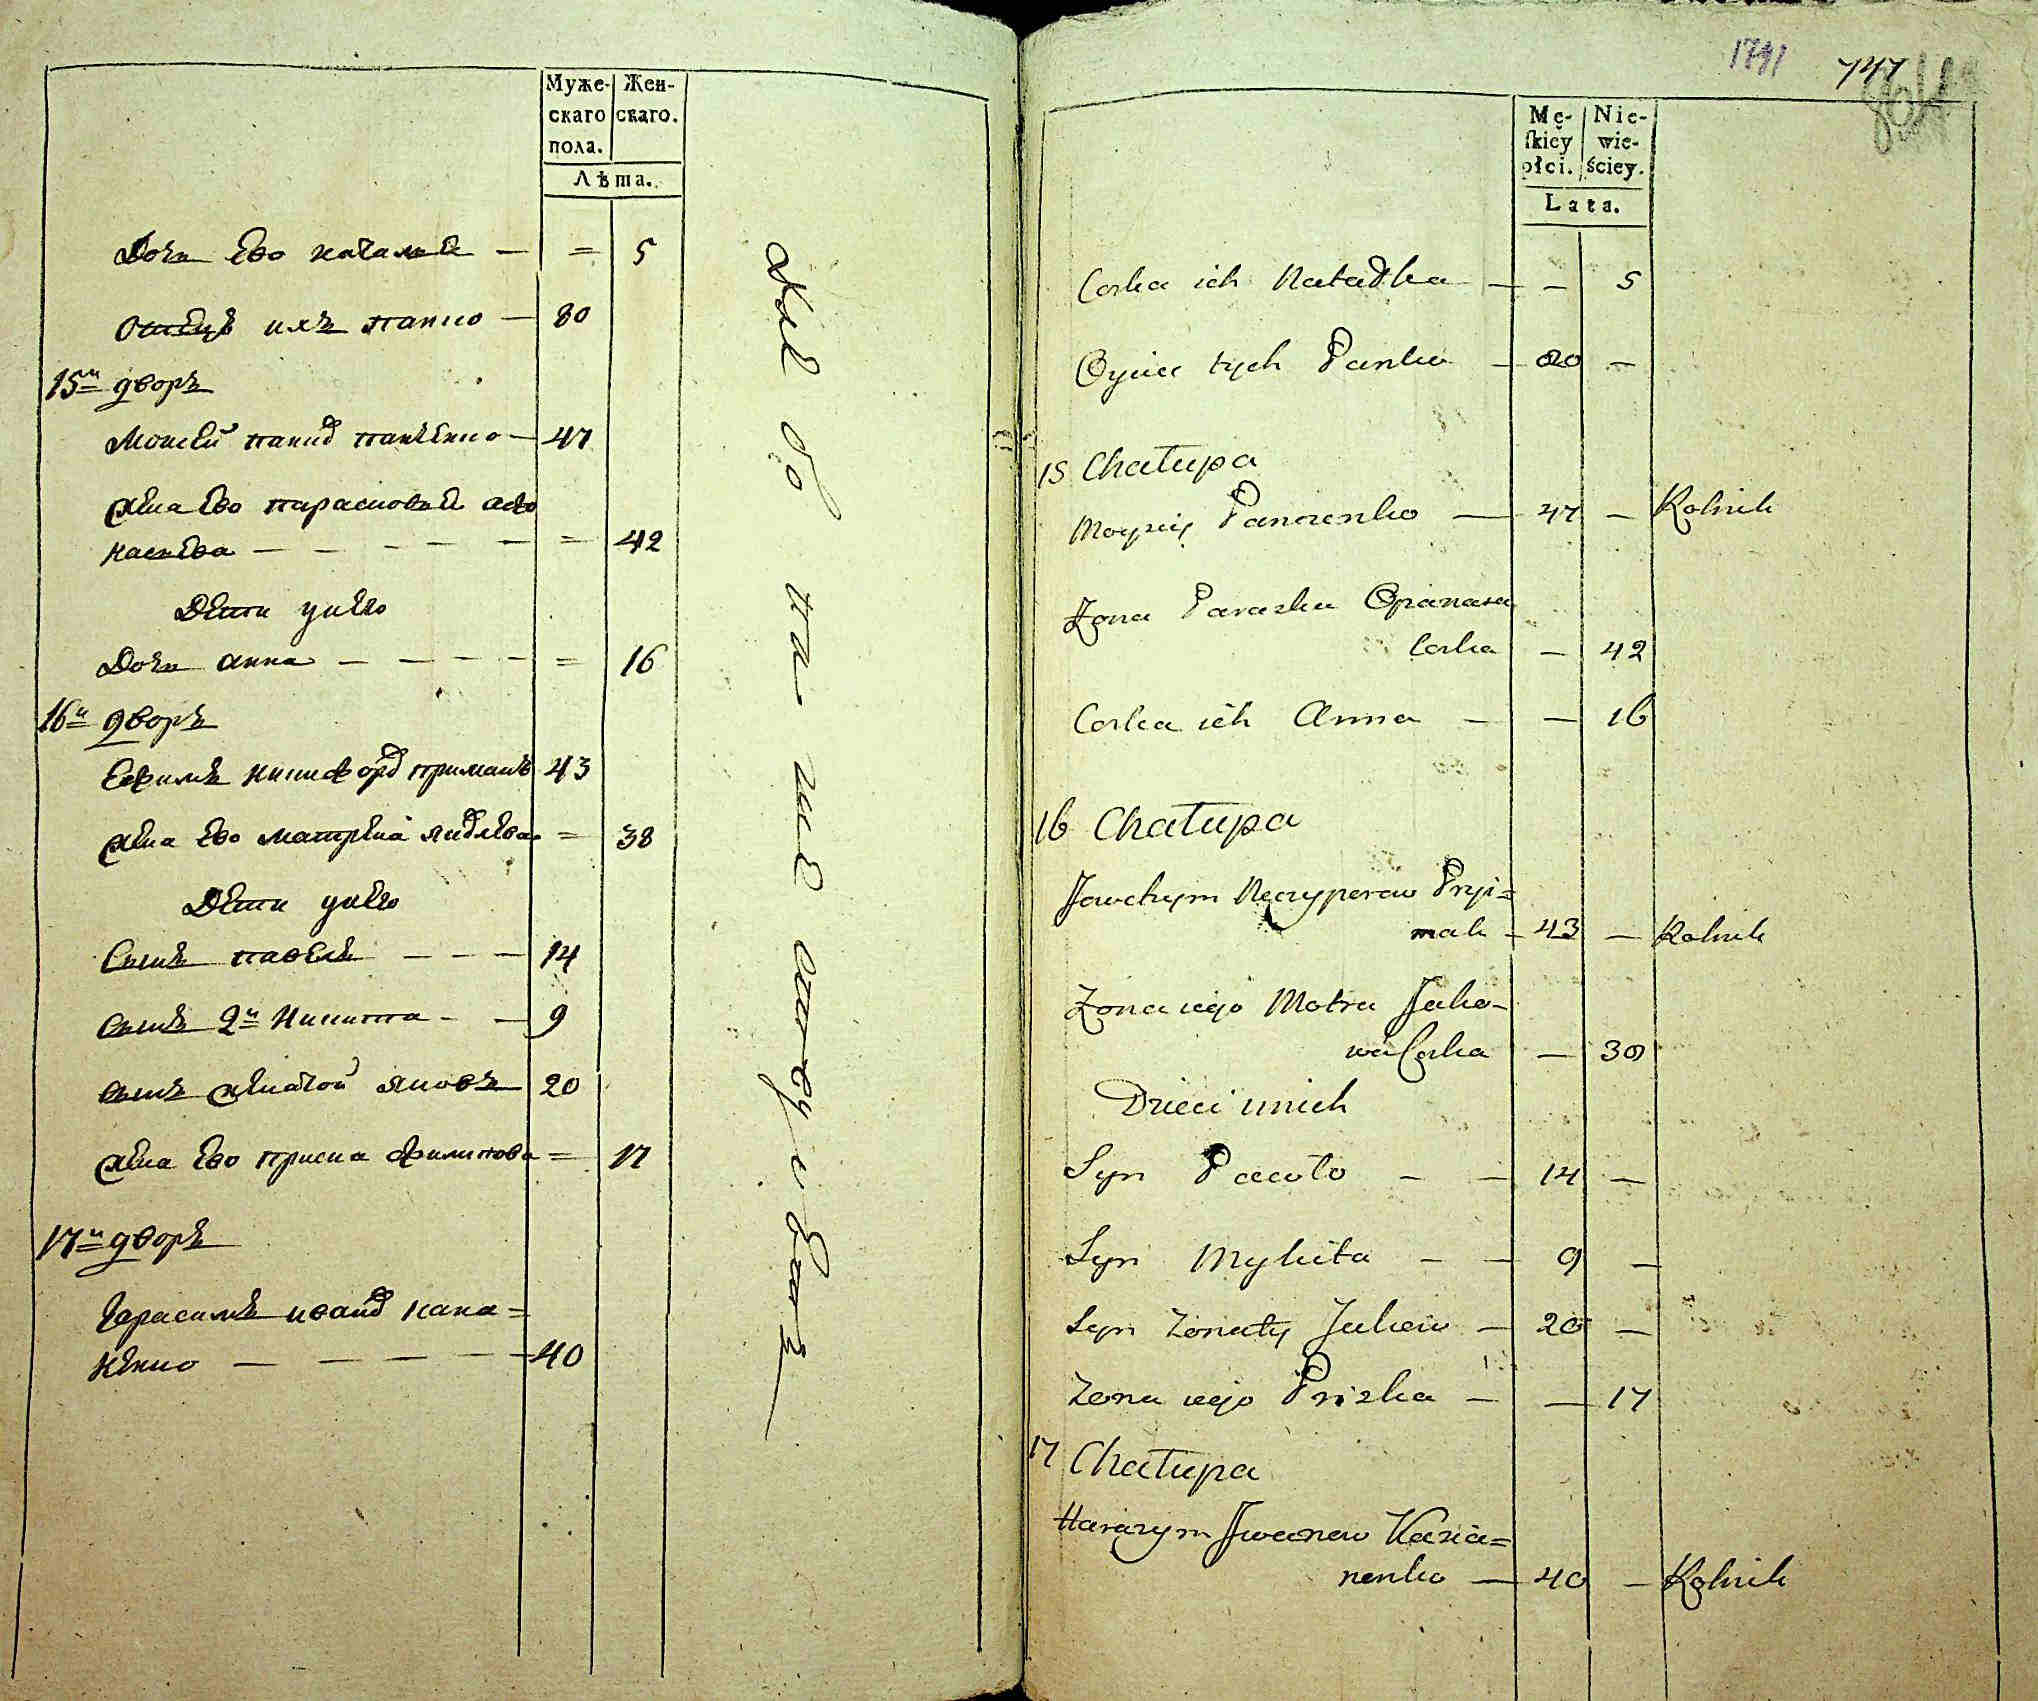 Муже-
скаго
пола.
Жен-
скаго.
Лѣта.
Дочь Ево наталья — = 5
Отецъ ихъ панко — 80
15й дворъ
Моисей панко панченко — 47
жена Ево парасковья
42
Дети у него
Дочь анна — — — — = 16
16й дворъ
Ефимъ никифоръ примакъ 43
жена Ево матрена яковлева = 38
Дети у него
Сынъ павелъ — — — 14
сынъ 2й Никита — — 9
сынъ женатой яковъ 20
жена Ево приска филипова = 17
17й дворъ
Герасимъ иванъ кака=
ненко — — — — — 40
1791
747
Mę-
ſkiey
płci.
Nie-
wie-
ściey.
Lata.
Corka ich Natalka — — 5
Oyciec tych Panko — 80 —
15 Chałupa
Moysiey Panczenko — 47 — Rolnik
Zona Paraska Opanasa
Corka — 42
Corka ich Anna — — 16
16 Chałupa
Jawchym Neczyperow Pryi=
mak — 43 — Rolnik
Zona iego Motra Jako-
wa Corka — 38
Dzieci u nich
Syn Pawło — — 14 —
Syn Mykita — — 9 —
Syn Zonaty Jakow — 20 —
Zona iego Priska — — 17
17 Chałupa
Harasym Iwanow Kania=
nenko — 40 — Rolnik